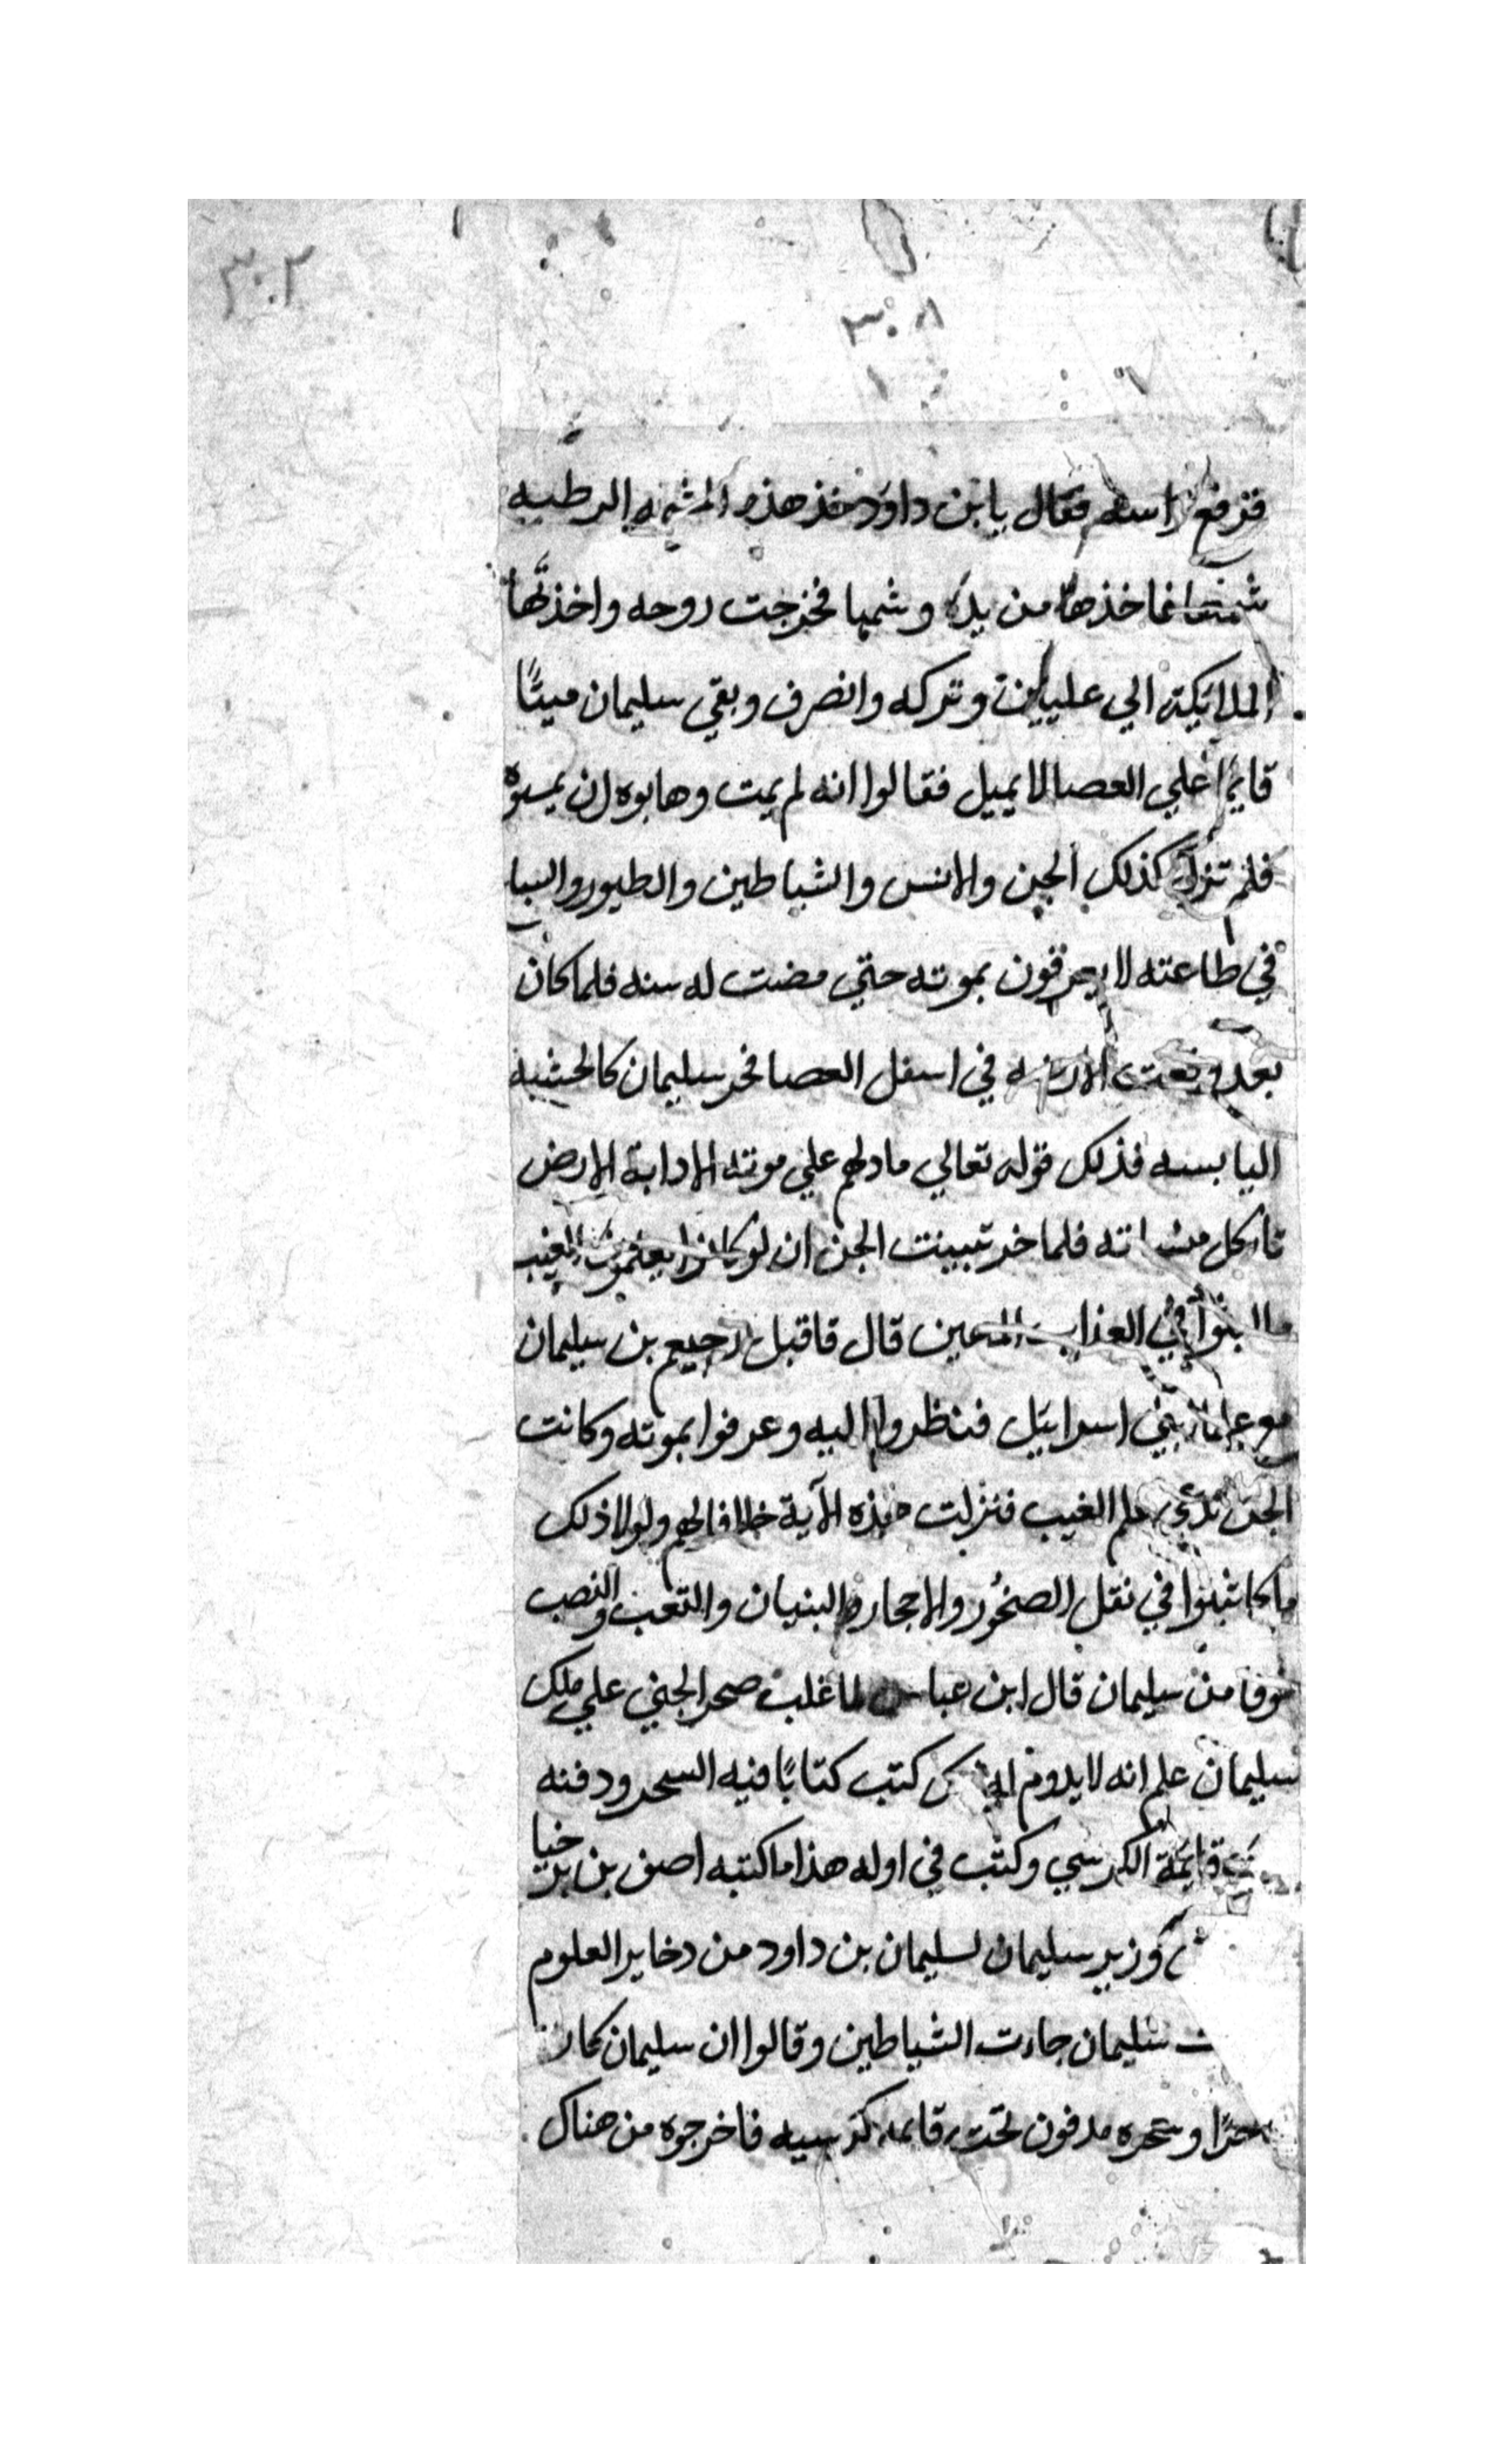 ٣٠٢
٣٠٨
فرفع راسه فقال يا بن داود خذ هذه الرطبه
شمها فاخذها من يده وشمها فخرجت روحه واخذتها
الملائكة الي عليين وتركه وانصرف وبقي سليمان ميتًا
قايمًا علي العصا لا يميل فقالوا انه لم يمت وهابوه ان يمسوه
فلم تزل كذلك الجن والانس والشياطين والطيور والسبا
في طاعته لا يعرفون بموته حتي مضت له سنه فلما كان
بعد وقعت في اسفل العصا فخر سليمان كالخشبه
اليابسه فذلك قوله تعالي ما دلهم علي موته الا دابة الارض
تاكل منساته فلما خر تبينت الجن ان لو كانوا يعلمون الغيب
ما لبثوا في العذاب المهين قال فاقبل رحبعم بن سليمان
مع بني اسرايل فنظروا اليه وعرفوا بموته وكانت
الجن تدعي علم الغيب فنزلت هذه الآية خلافا لهم ولولا ذلك
ما لبثوا في نقل الصخور والاحجار والبنيان والتعب والنصب
خوفا من سليمان قال ابن عباس لما غلب صخر الجني علي ملك
سليمان علم انه لا يدوم كتب كتابًا فيه السحر ودفنه
تحت قايمة الكرسي وكتب في اوله هذا ما كتبه اصف بن برخيا
وزير سليمان لسليمان بن داود من دخاير العلوم
سليمان جاءت الشياطين وقالوا ان سليمان كان
وسحره مدفون تحت قايمه كرسيه فاخرجوه من هناك